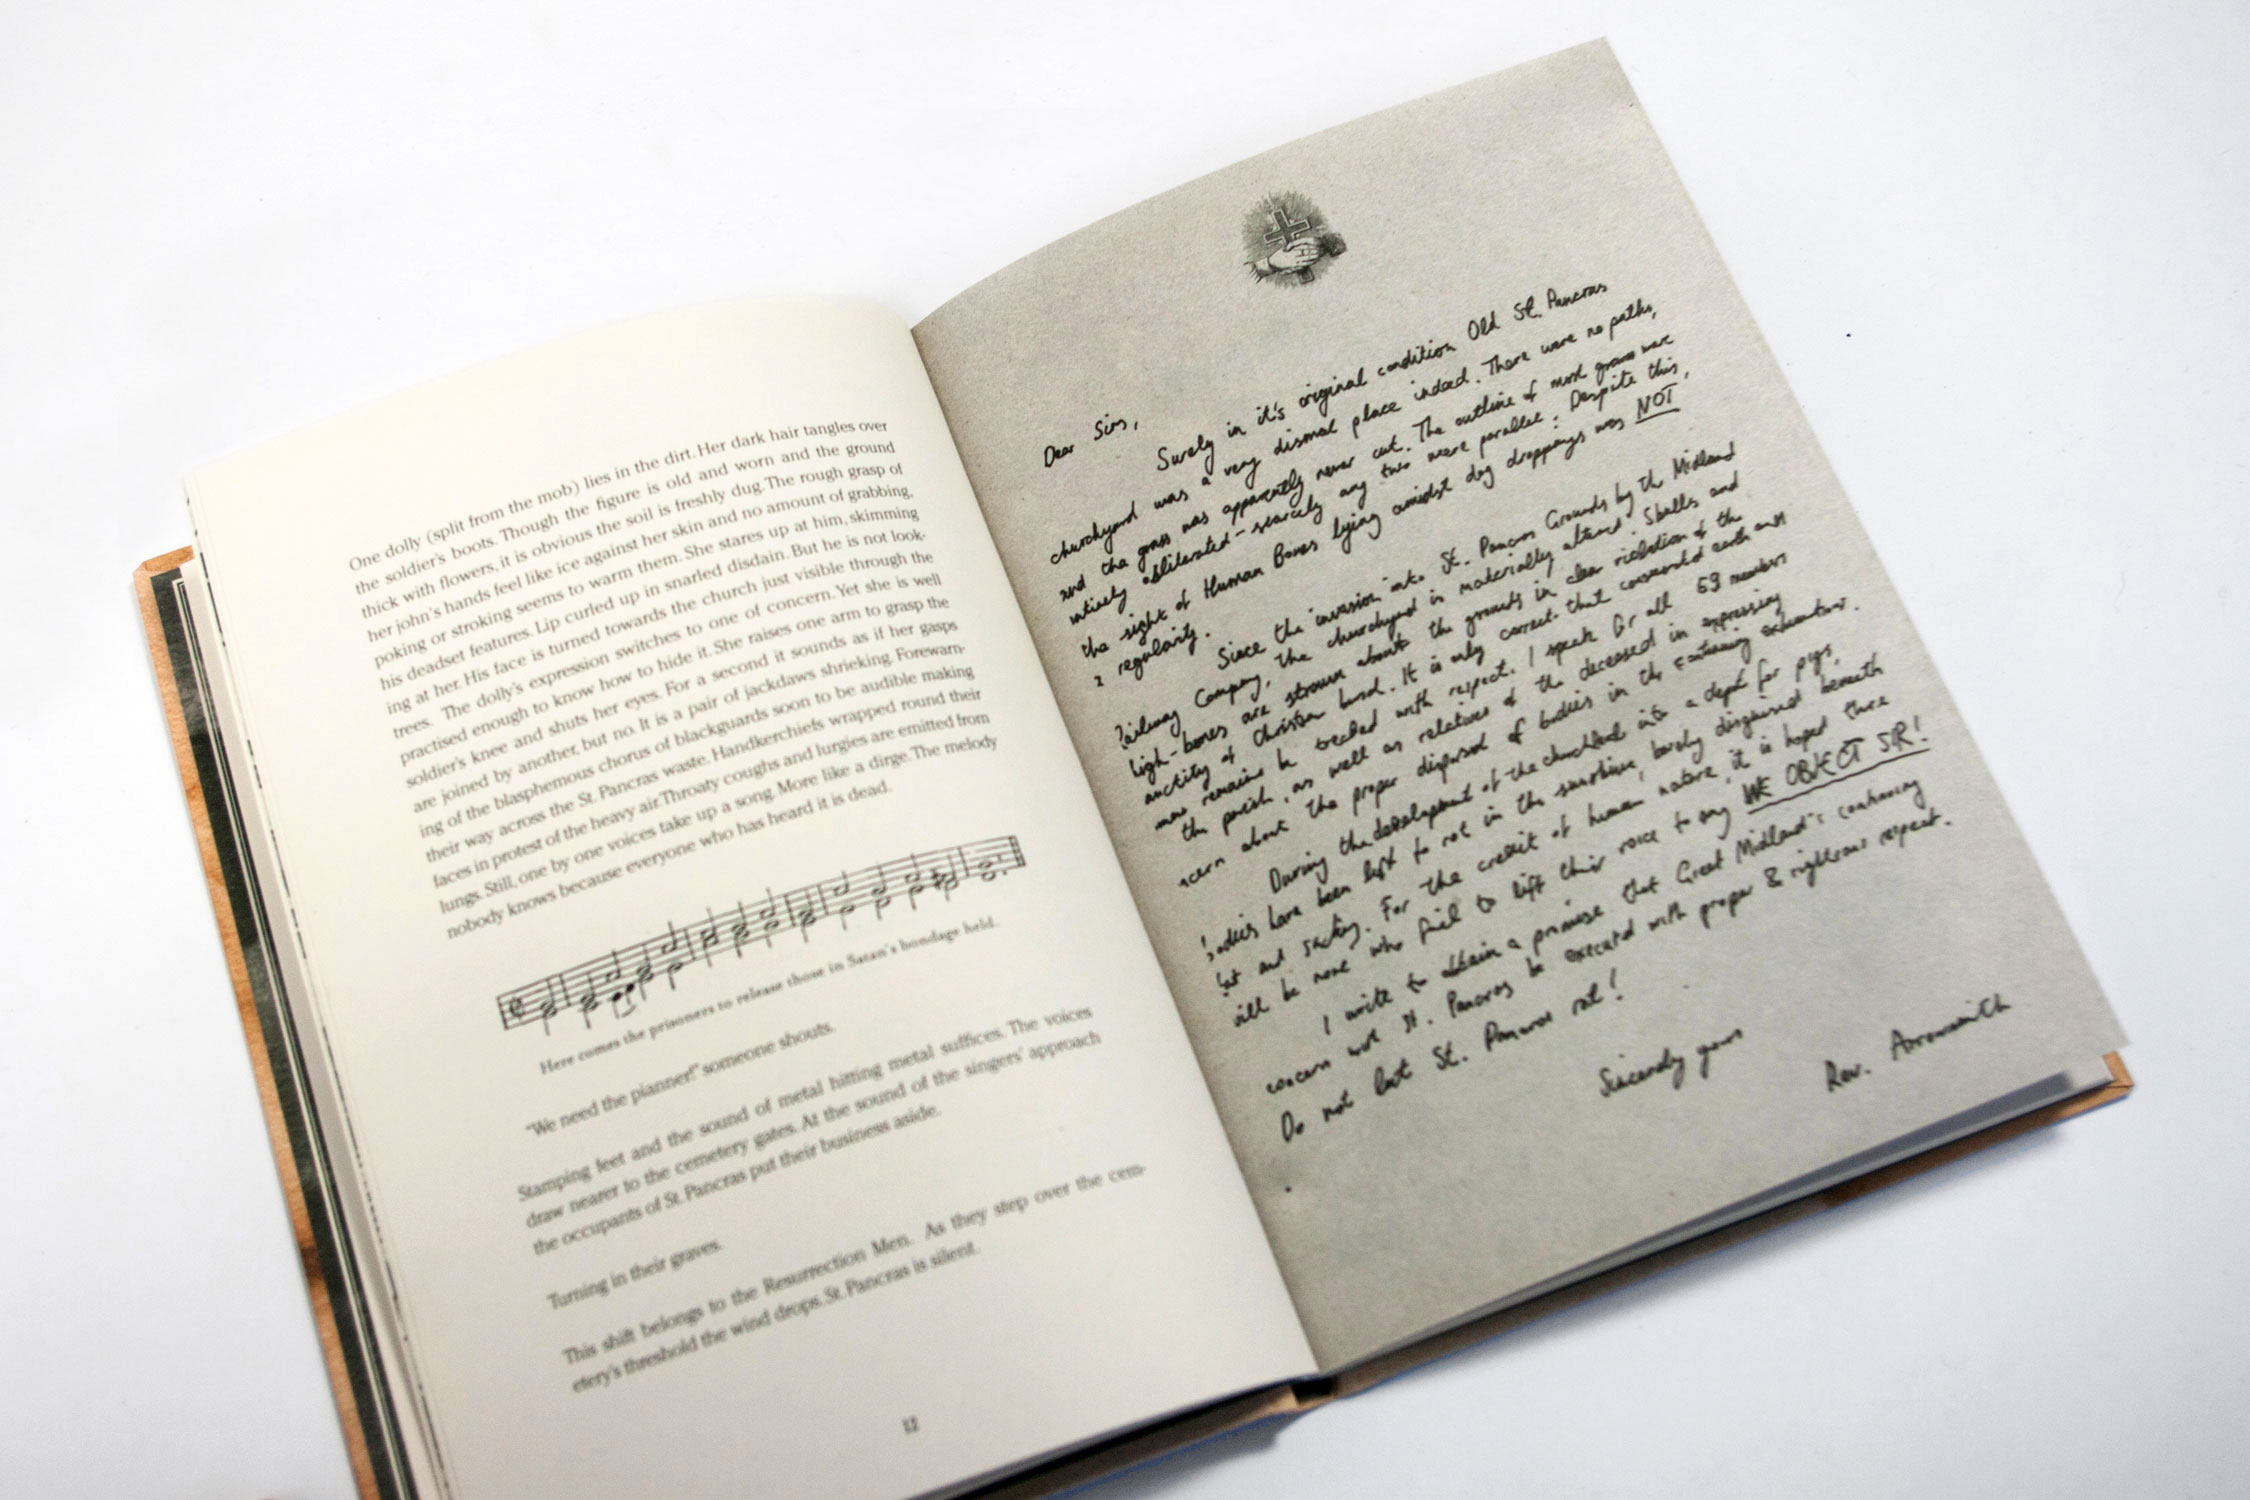 One dolly (split from the mob) lies in the dirt. Her dark hair tangles over
the soldier's boots. Though the figure is old and worn and the ground
thick with flowers, it is obvious the soil is freshly dug. The rough grasp of
her john's hands feel like ice against her skin and no amount of grabbing,
poking or stroking seems to warm them. She stares up at him, skimming
his deadset features. Lip curled up in snarled disdain. But he is not look-
ing at her. His face is turned towards the church just visible through the
trees. The dolly's expression switches to one of concern. Yet she is well
practised enough to know how to hide it. She raises one arm to grasp the
soldier's knee and shuts her eyes. For a second it sounds as if her gasps
are joined by another, but no. It is a pair of jackdaws shrieking. Forewarn-
ing of the blasphemous chorus of blackguards soon to be audible making
their way across the St. Pancras waste. Handkerchiefs wrapped round their
faces in protest of the heavy air. Throaty coughs and lurgies are emitted from
lungs. Still, one by one voices take up a song. More like a dirge. The melody
nobody knows because everyone who has heard it is dead.
Here comes the prisoners to release those in Satan's bondage held.
"We need the pianner!" someone shouts.
Stamping feet and the sound of metal hitting metal suffices. The voices
draw nearer to the cemetery gates. At the sound of the singers' approach
the occupants of St. Pancras put their business aside.
Turning in their graves.
This shift belongs to the Resurrection Men. As they step over the cem-
etery's threshold the wind drops. St. Pancras is silent.
12
Dear Sirs,
Surely in it's original condition Old St. Pancras
churchyard was a very dismal place indeed. There were no paths,
and the grass was apparently never cut. The outline of most graves were
entirely obliterated - scarcely any two were parallel: Despite this,
the sight of Human Bones lying amidst dog droppings was NOT
a regularity.
Since the invasion into St. Pancras Grounds by the Midland
Railway Company, the churchyard is materially altered. Skulls and
thigh-bones are strewn about the grounds in clear violation of the
sanctity of Christian burial. It is only correct that consecrated earth and
remains be treated with respect. I speak for all 59 members
the parish, as well as relatives of the deceased in expressing
concern about the proper disposal of bodies in the continuing exhumations.
During the development of the churchland into a depot for pigs,
bodies have been left to rot in the sunshine, barely disguised beneath
and sacking. For the credit of human nature, it is hoped there
will be none who fail to lift their voice to say WE OBJECT SIR!
I write to obtain a promise that Great Midland's continuing
concern work St. Pancras be executed with proper & righteous respect.
Do not let St. Pancras rot!
Sincerely yours
Rev. Arrowsmith